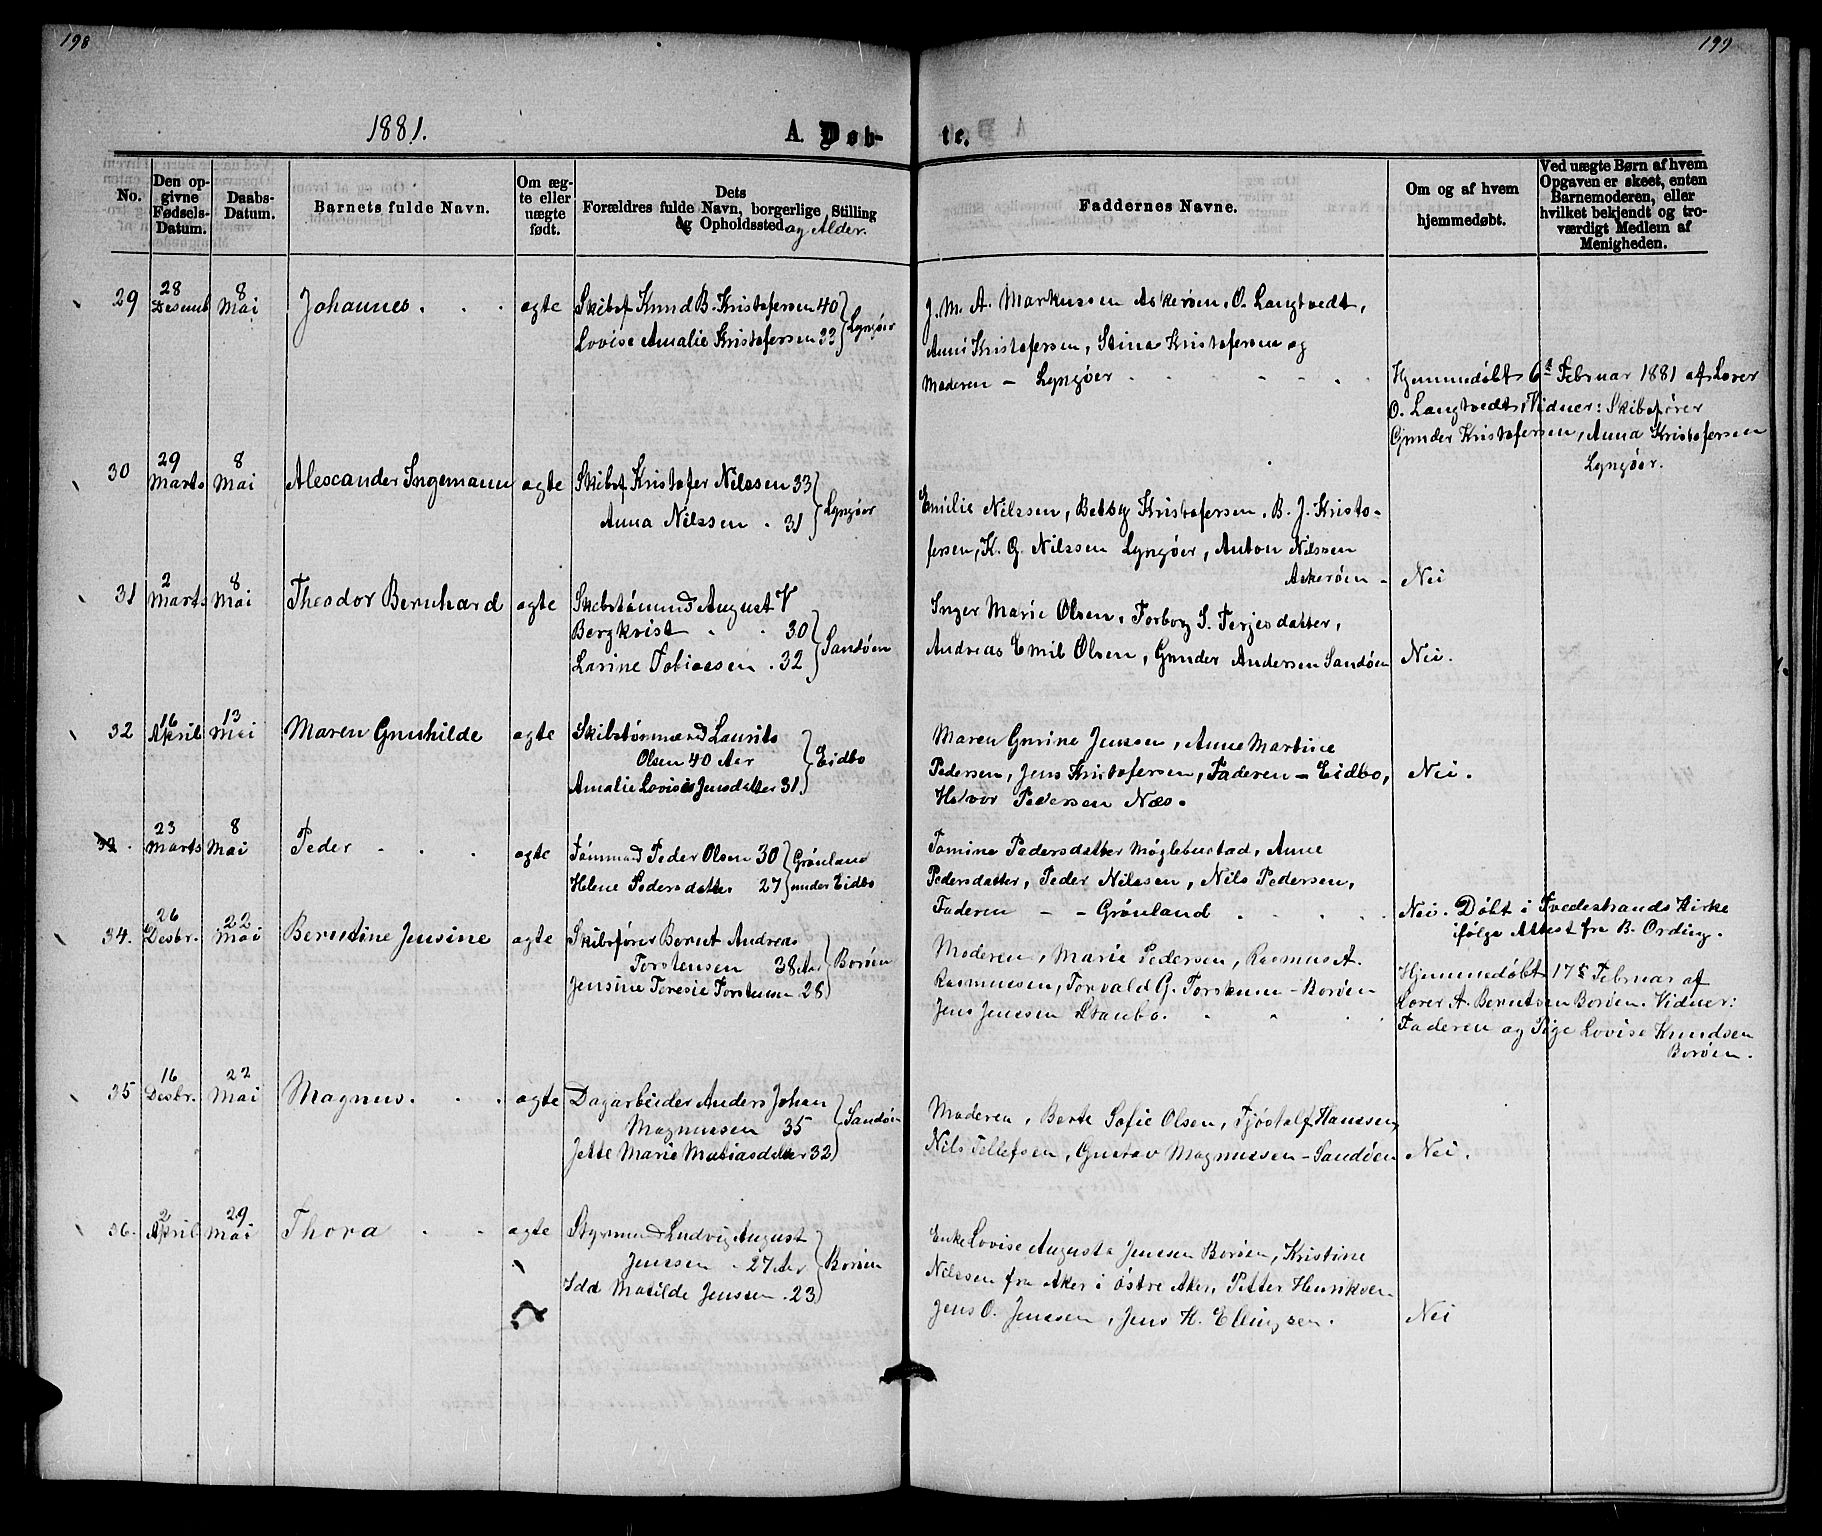 198
199
1881.
A. Døb-
te.
No.
Den op-
givne
Fødsels-
Datum.
Daabs-
Datum.
Barnets fulde Navn.
Om æg-
te eller
uægte
født.
Dets
Forældres fulde Navn, borgerlige Stilling
og Opholdssted og Alder.
Faddernes Navne.
Om og af hvem
hjemmedøbt.
Ved uægte Børn af hvem
Opgaven er skeet, enten
Barnemoderen, eller
hvilket bekjendt og tro-
værdigt Medlem af
Menigheden.
29
28
Desemb
8
Mai
Johannes . . .
agte
Skibsf Knud B. Kristofersen 40
Lovise Amalie Kristofersen 33
Lyngøer
J. M. A. Markussen Askerøen, O. Langtvedt,
Anne Kristofersen, Stina Kristofersen og
Moderen - Lyngøer
Hjemmedøbt 6te Februar 1881 af Lærer
O. Langtvedt, Vidner: Skibsfører
Gunder Kristofersen, Anna Kristofersen
Lyngøer.
30
29
Marts
8
Mai
Alexcander Ingemann
agte
Skibsf Kristofer Nilssen 33
Anna Nilssen . 31
Lyngøer
Emilie Nilssen, Betsy Kristofersen, B. J. Kristo-
fersen, K. G. Nilssen Lyngøer, Anton Nilssen
Askerøen -
Nei
31
2
Marts
8
Mai
Theodor Bernhard
agte
Skibstømmd August V
Bergkvist . . 30
Larine Tobiassen . 32
Sandøen
Inger Marie Olsen, Torborg S. Terjesdatter,
Andreas Emil Olsen, Gunder Andersen Sandøen
Nei.
32
16
April
13
Mai
Maren Gunhilde
agte
Skibstømmd Laurits
Olsen 40 Aar
Amalie Lovise Jensdatter 31
Eidbo
Maren Gurine Jensen, Anne Martine
Pedersen, Jens Kristofersen, Faderen - Eidbo,
Halvor Pedersen Næs.
Nei.
23
Marts
8
Mai
Peder - . .
agte
Tømmd Peder Olsen 30
Helene Pedersdatter 27
Grønland
under Eidbo
Tomine Pedersdatter Møglebustad, Anne
Pedersdatter, Peder Nilssen, Nils Pedersen,
Faderen - - Grønland
Nei. Døbt i Tvedestrands Kirke
ifølge Attest fra B. Ording.
34.
26
Desbr.
22
Mai
Berntine Jensine
agte
Skibsfører Bernt Andreas
Torstensen 38 Aar
Jensine Teresie Torstensen 28
Borøen
Moderen, Marie Pedersen, Rasmus A.
Rasmussen, Torvald G. Torstensen - Borøen
Jens Jenssen Staubo.
Hjemmedøbt 17de Februar af
Lærer A. Berntsen Borøen. Vidner:
Faderen og Pige Lovise Knudsen
Borøen.
35
16
Desbr.
22
Mai
Magnus. . .
agte
Dagarbeider Anders Johan
Magnussen 35
Jette Marie Matiasdatter 32
Sandøen
Moderen, Berte Sofie Olsen, Tjøstolf Hanssen,
Nils Tellefsen, Gustav Magnussen - Sandøen
Nei.
36.
2
April
29
Mai
Thora . . .
agte
Styrmand Ludvig August
Jenssen . 27 Aar
Ida Matilde Jenssen . 23
Borøen
Enke Lovise Augusta Jenssen Borøen, Kristine
Nilssen fra Aker i Østre Aker, Petter Henriksen
Jens O. Jenssen, Jens H. Ellingsen.
Nei